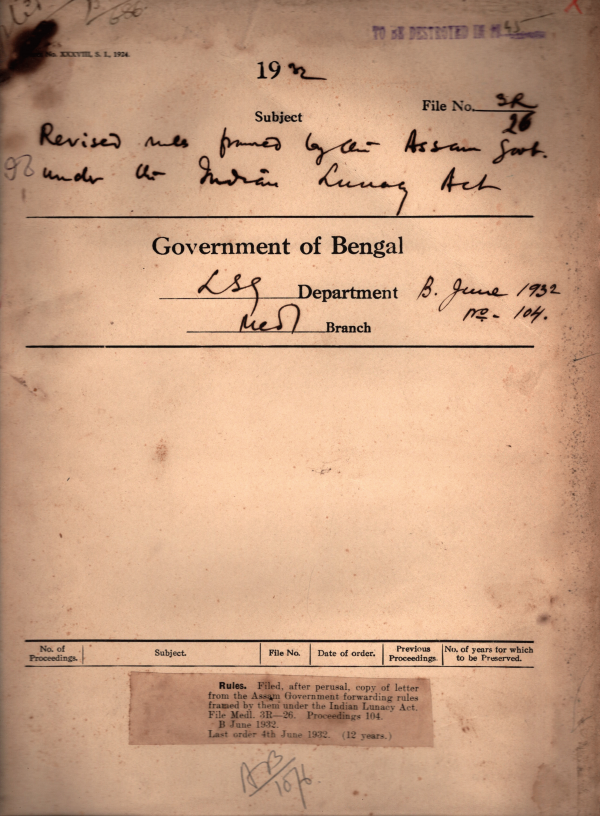 TO BE DESTROYED IN 19 45
No. XXXVIII, S. I., 1924.
1932
File No. 3R/26
Subject
Revised rules framed by the Assam Govt.
under the Indian Lunacy Act
Government of Bengal
LSG Department B. June 1932
Medl Branch No - 104.
No. of Proceedings. Subject. File No. Date of order. Previous Proceedings No. of years for which to be Preserved.
Rules. Filed, after perusal, copy of letter
from the Assam Government forwarding rules
framed by them under the Indian Lunacy Act.
File Medl. 3R—26. Proceedings 104.
B June 1932.
Last order 4th June 1932. (12 years.)